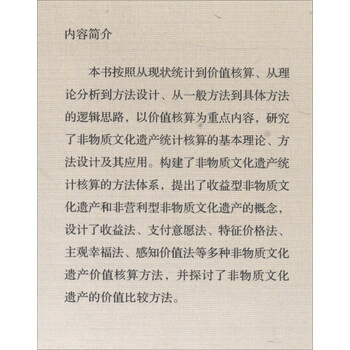 内容简介
本书按照从现状统计到价值核算、从理
论分析到方法设计、从一般方法到具体方法
的逻辑思路，以价值核算为重点内容，研究
了非物质文化遗产统计核算的基本理论、方
法设计及其应用。构建了非物质文化遗产统
计核算的方法体系，提出了收益型非物质文
化遗产和非营利型非物质文化遗产的概念，
设计了收益法、支付意愿法、特征价格法、
主观幸福法、感知价值法等多种非物质文化
遗产价值核算方法，并探讨了非物质文化
遗产的价值比较方法。